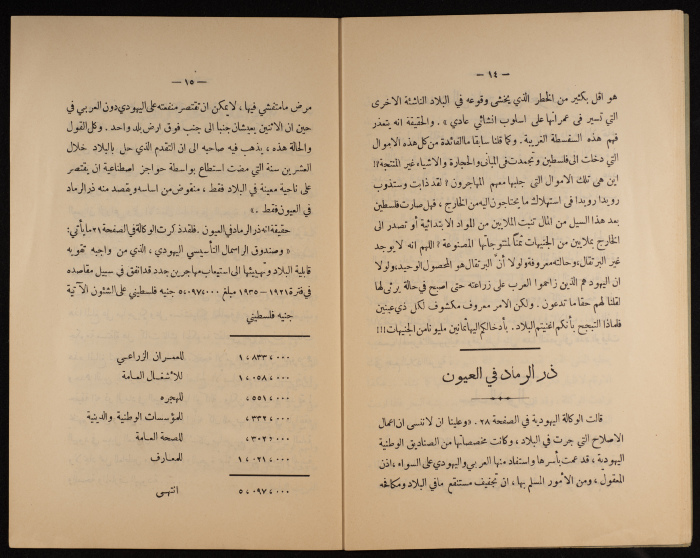 — ١٤ —
هو اقل بكثير من الخطر الذي يخشى وقوعه في البلاد الناشئة الاخرى
التي تسير في عمرانها على اسلوب انشائي عادي » . والحقيقة انه يتعذر
فهم هذه السفسطة الغريبة . وكما قلنا سابقا ما الفائدة من كل هذه الاموال
التي دخلت الى فلسطين وتجمدت في المباني والحجارة والاشياء غير المنتجة؟!
اين هي تلك الاموال التي جلبها معهم المهاجرون؟ لقد ذابت وستذوب
رويدا رويدا في استهلاك ما يحتاجون اليه من الخارج ، فهل صارت فلسطين
بعد هذا السيل من المال تنبت الملايين من المواد الابتدائية أو تصدر الى
الخارج بملايين من الجنيهات ثمناً لمنتوجاتها المصنوعة ؟ اللهم انه لا يوجد
غير البرتقال، وحالته معروفة ولولا أنَّ البرتقال هو المحصول الوحيد، ولولا
ان اليهود هم الذين زاحموا العرب على زراعته حتى اصبح في حالة يرثى لها
لقلنا لهم حقا ما تدعون . ولكن الامر معروف مكشوف لكل ذي عينين
فلماذا التبجح بأنكم اغنيتم البلاد . بأدخالكم اليها ثمانين مليونا من الجنيهات !!!
ذر الرماد في العيون
قالت الوكالة اليهودية في الصفحة ٢٨ . « وعلينا ان لا ننسى ان اعمال
الاصلاح التي جرت في البلاد ، وكانت مخصصاتها من الصناديق الوطنية
اليهودية ، قد عمت بأسرها واستفاد منها العربي واليهودي على السواء ، اذن
المعقول ، ومن الأمور المسلم بها ، ان تجفيف مستنقع ما في البلاد ومكافحة
— ١٥ —
مرض ما متفشي فيها ، لا يمكن ان تقتصر منفعته على اليهودي دون العربي في
حين ان الاثنين يعيشان جنبا الى جنب فوق ارض بلد واحد . وكل القول
والحالة هذه ، يذهب فيه صاحبه الى ان التقدم الذي حل بالبلاد خلال
العشرين سنة التي مضت استطاع بواسطة حواجز اصطناعية ان يقتصر
على ناحية معينة في البلاد فقط ، منقوض من اساسه ويقصد منه ذر الرماد
في العيون فقط . »
حقيقة انه ذر الرماد في العيون . فلقد ذكرت الوكالة في الصفحة ٢١ ما يأتي :
« وصندوق الراسمال التأسيسي اليهودي ، الذي من واجبه تقويه
قابلية البلاد وتهيئتها الى استيعاب مهاجرين جدد قد انفق في سبيل مقاصده
في فترة ١٩٢١ - ١٩٣٥ مبلغ ٥،٠٩٧،٠٠٠ جنيه فلسطيني على الشئون الآتية
جنيه فلسطيني
١،٨٣٣،٠٠٠ للعمران الزراعي
١،٠٥٨،٠٠٠ للأشغال العامة
،٥٥١،٠٠٠ للهجره
،٣٣٢،٠٠٠ للمؤسسات الوطنية والدينية
،٣٠٢،٠٠٠ للصحة العامة
١،٠٢١،٠٠٠ للمعارف
٥،٠٩٧،٠٠٠ انتهى